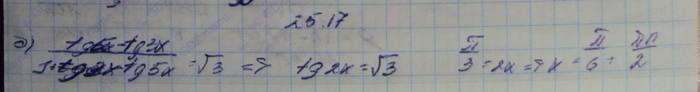 25.17
д) tg5x-tg3x
1+tg3x tg5x =√3 => tg2x=√3 π/3 =2x=>x= π/6 + πn/2